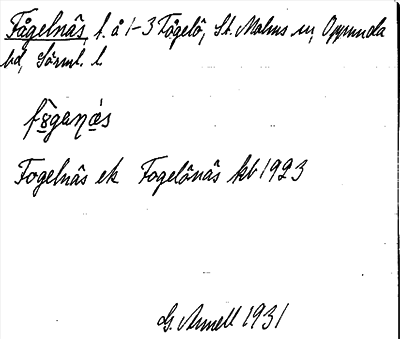 Fågelnäs, l. å 1-3 Fågelö, St. Malms sn, Oppunda
hd, Sörml. l.
Fogelnäs ek Fogelönäs kb 1923
G. Annell 1931